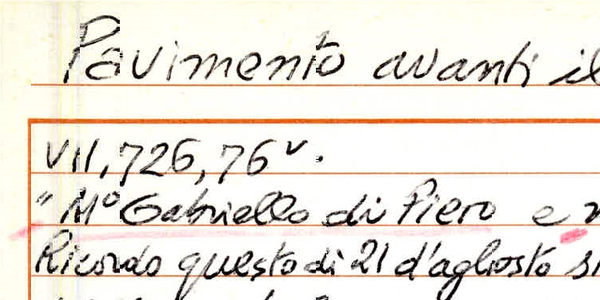 Pavimento avanti il
VII, 726, 76v.
"Mº Gabriello di Piero e
Ricordo questo di 21 d'agliosto si